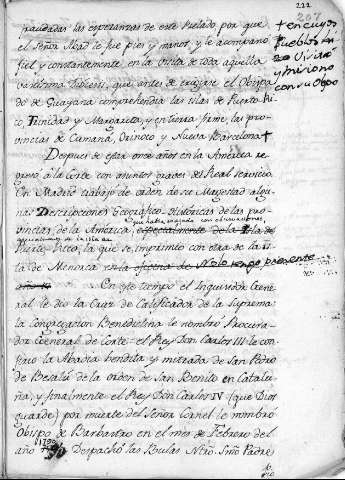 222
207
fraudadas las esperanzas de este Prelado por que
el Señor Abad le fue pies y manos, y le acompañó
fiel y constantemente en la visita de toda aquella
vastisima Diócesis, que antes de erigirse el Obispa
do de Guayana comprehendia las islas de Puerto Ri
co, Trinidad y Margarita, y en tierra firme, las pro
vincias de Cumaná, Orinoco y Nueva Barcelona +
+ en cuyos
Pueblos
visitó
y misionó
con su Obpo
Despues de estar once años en la América re
gresó á la Corte con asuntos graves del Real servicio.
En Madrid trabajó de orden de su Magestad algu
nas Descripciones Geografico-Historicas de las pro
vincias, de la América, especialmente de la Isla de
que habia viajado con
Puerto Rico, la que se imprimió con otra de la Is
la de Menorca en la oficina de No lo tengo presente
año
En este tiempo el Inquisidor Gene
ral le dió la Cruz de Calificador de la Suprema:
la Congregacion Benedictina le nombró Procura
dor General de Corte: el Rey Don Carlos III le con
firió la Abadía bendita y mitrada de San Pedro
de Besalú de la orden de San Benito en Catalu
ña, y finalmente el Rey Don Carlos IV (que Dios
guarde) por muerte del Señor Cornel le nombró
Obispo de Barbastro en el mes de Febrero del
año 1790 Despachó las Bulas Ntro Smo Padre